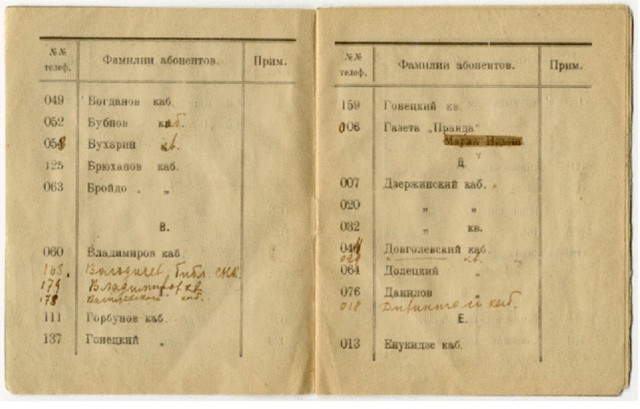 №№ телеф. Фамилии абонентов. Прим.
049 Богданов каб.
052 Бубнов каб.
058 Бухарин кв.
125 Брюханов каб.
063 Бройдо " "
В.
060 Владимиров каб.
163. библ.
174 Владимиров кв.
178
111 Горбунов каб.
137 Гонецкий "
№№ телеф. Фамилии абонентов. Прим.
159 Гонецкий кв.
006 Газета „Правда"
Д.
007 Дзержинский каб.
020 " "
032 " кв.
044 Довголевский каб.
064 Долецкий "
076 Данилов "
018 каб.
Е.
013 Енукидзе каб.